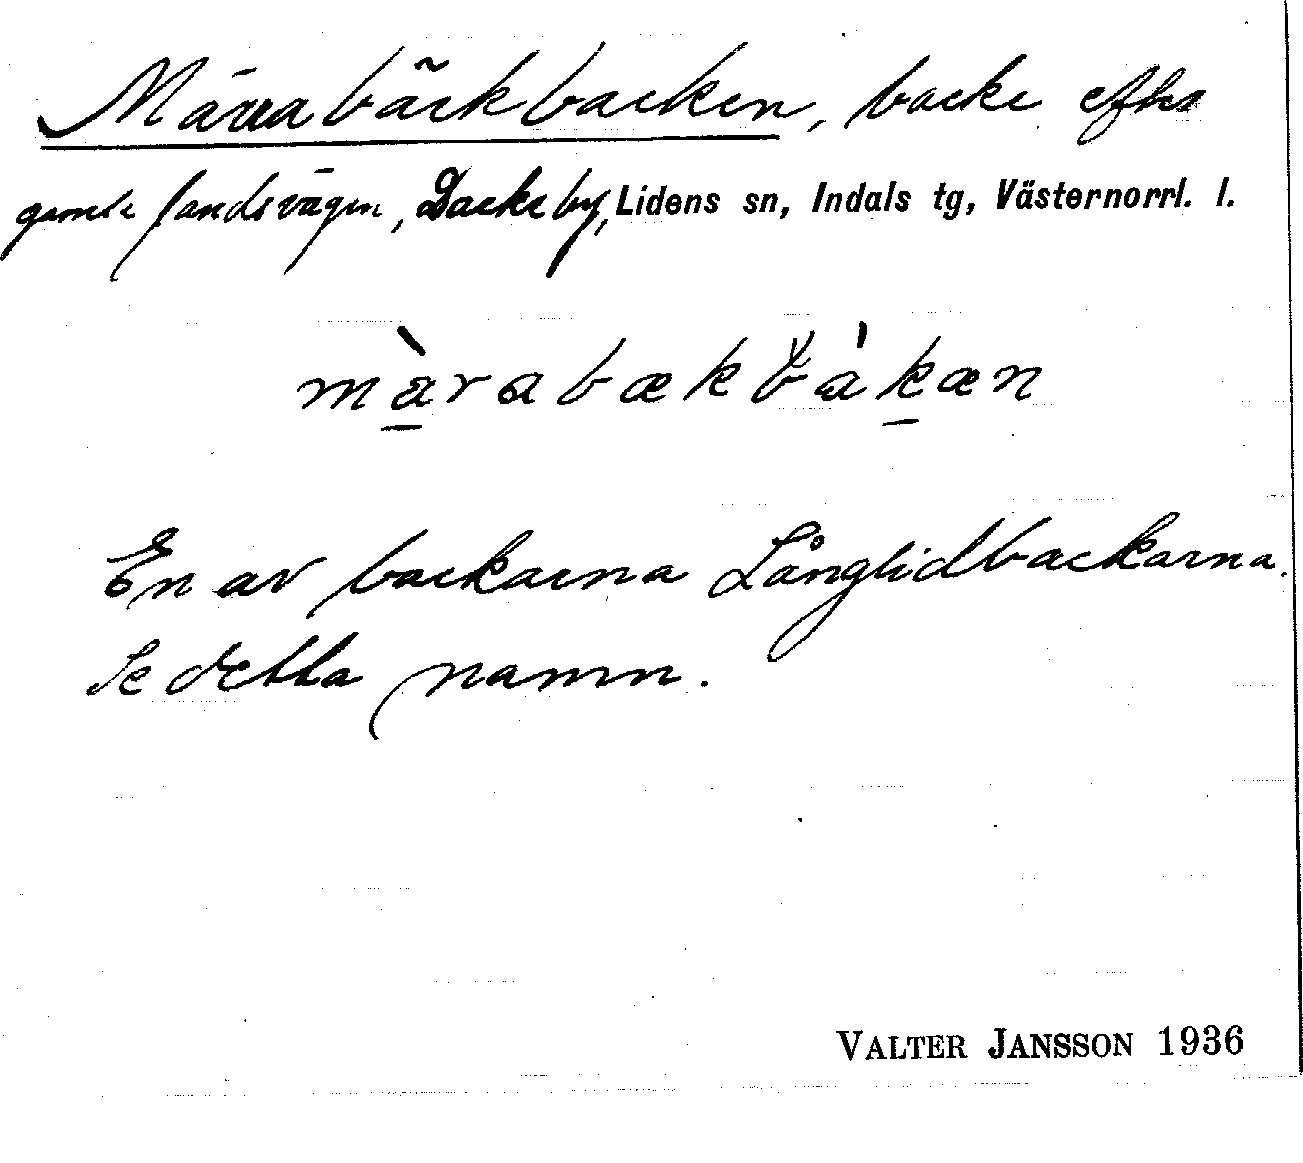 Märrabäckbacken, backe efter
gamla landsvägen, Backe by, Lidens sn, Indals tg, Västernorrl. l.
màrabækb̆àkæn
En av backarna Långlidbackarna.
Se detta namn.
VALTER JANSSON 1936